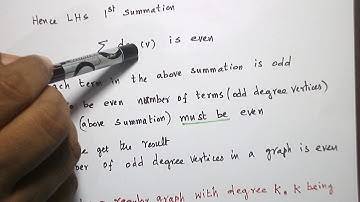 Hence LHS 1st summation
∑ (v) is even
each term in the above summation is odd
to be even number of terms (odd degree vertices)
(above summation) must be even
we get the result
number of odd degree vertices in a graph is even
regular graph with degree K, K being